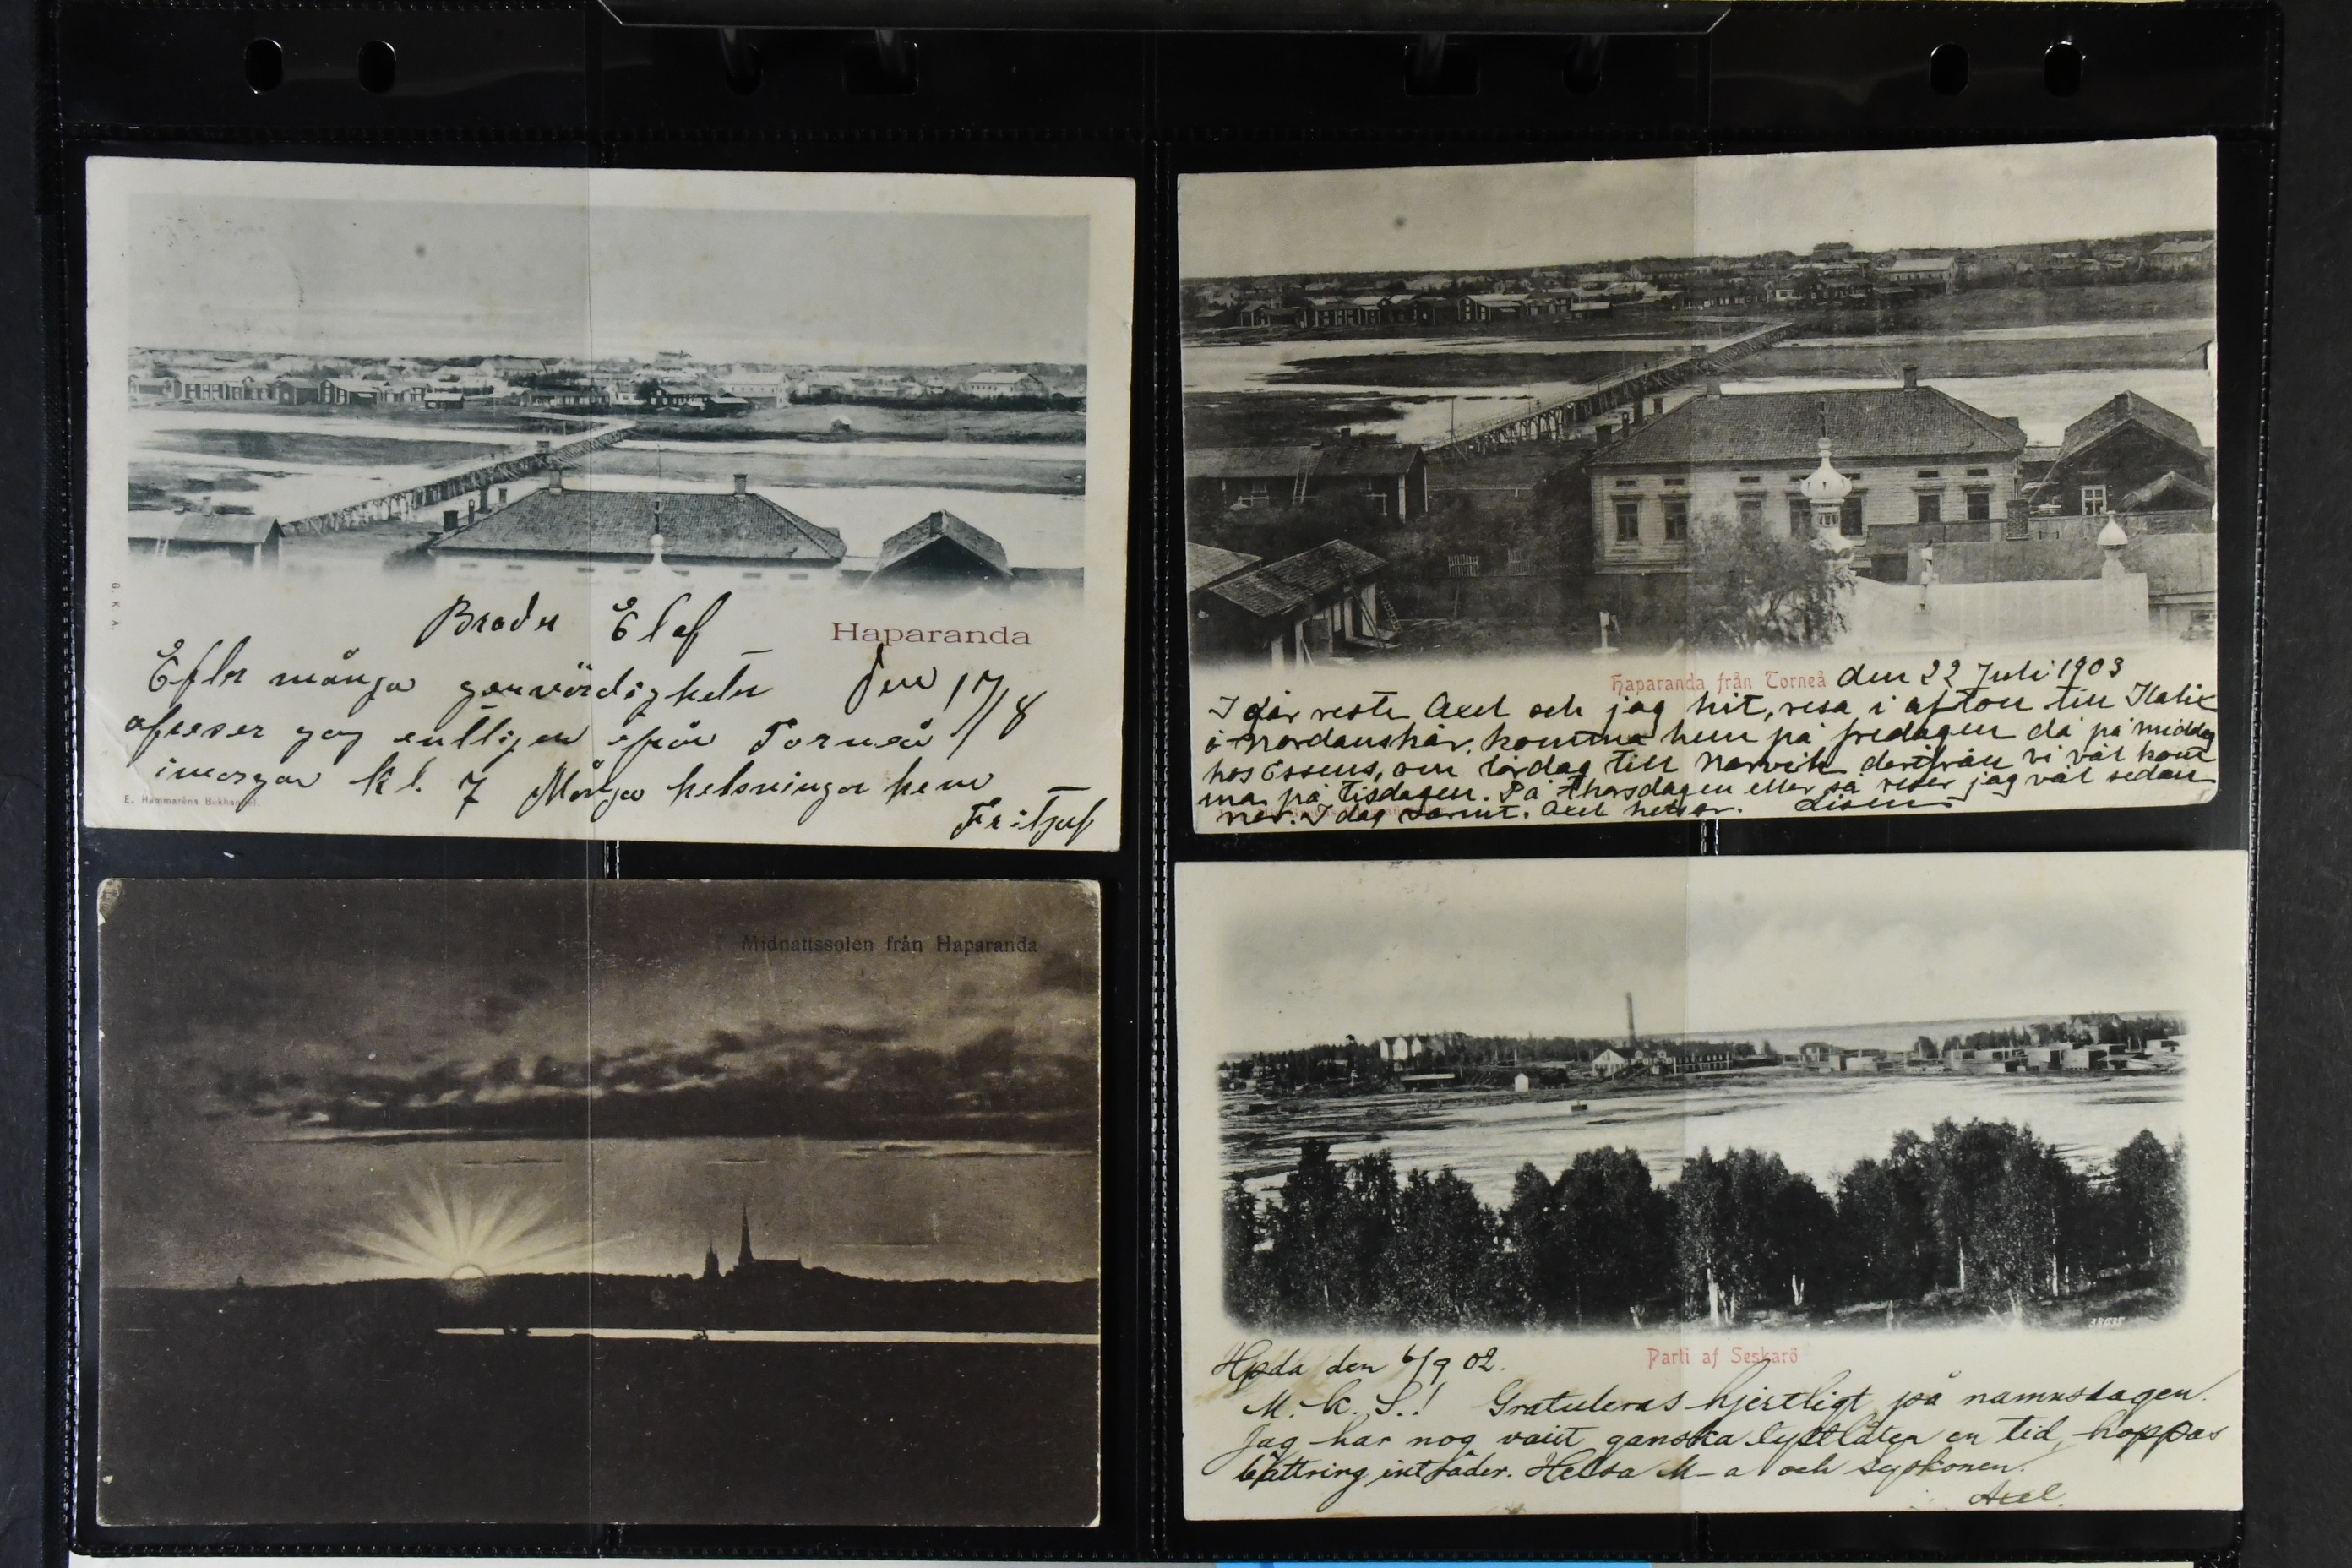 G. K. A.
Broder Elof
Haparanda
Efter många den 17/8
afreser jag entligen från Torneå
imorgon kl. 7 Många helsningar hem
E. Hammaréns Bokhandel.
Fritjof
Haparanda från Torneå den 22 Juli 1903
I går reste Axel och jag hit, resa i afton till
å Nordanskär, komma hem på fredagen då på middag
hos Essens, om lördag till Narvik därifrån vi väl komma
på tisdagen. På thorsdagen eller så reser jag väl sedan
ner. I dag varmt. Axel helsar. Lisen
Midnattssolen från Haparanda
Parti af Seskarö
Hpda den 6/9 02.
M. K. S.! Gratuleras hjertligt på namnsdagen.
Jag har nog varit ganska en tid, hoppas
bättring inträder. Helsa M-a och syskonen.
Axel.